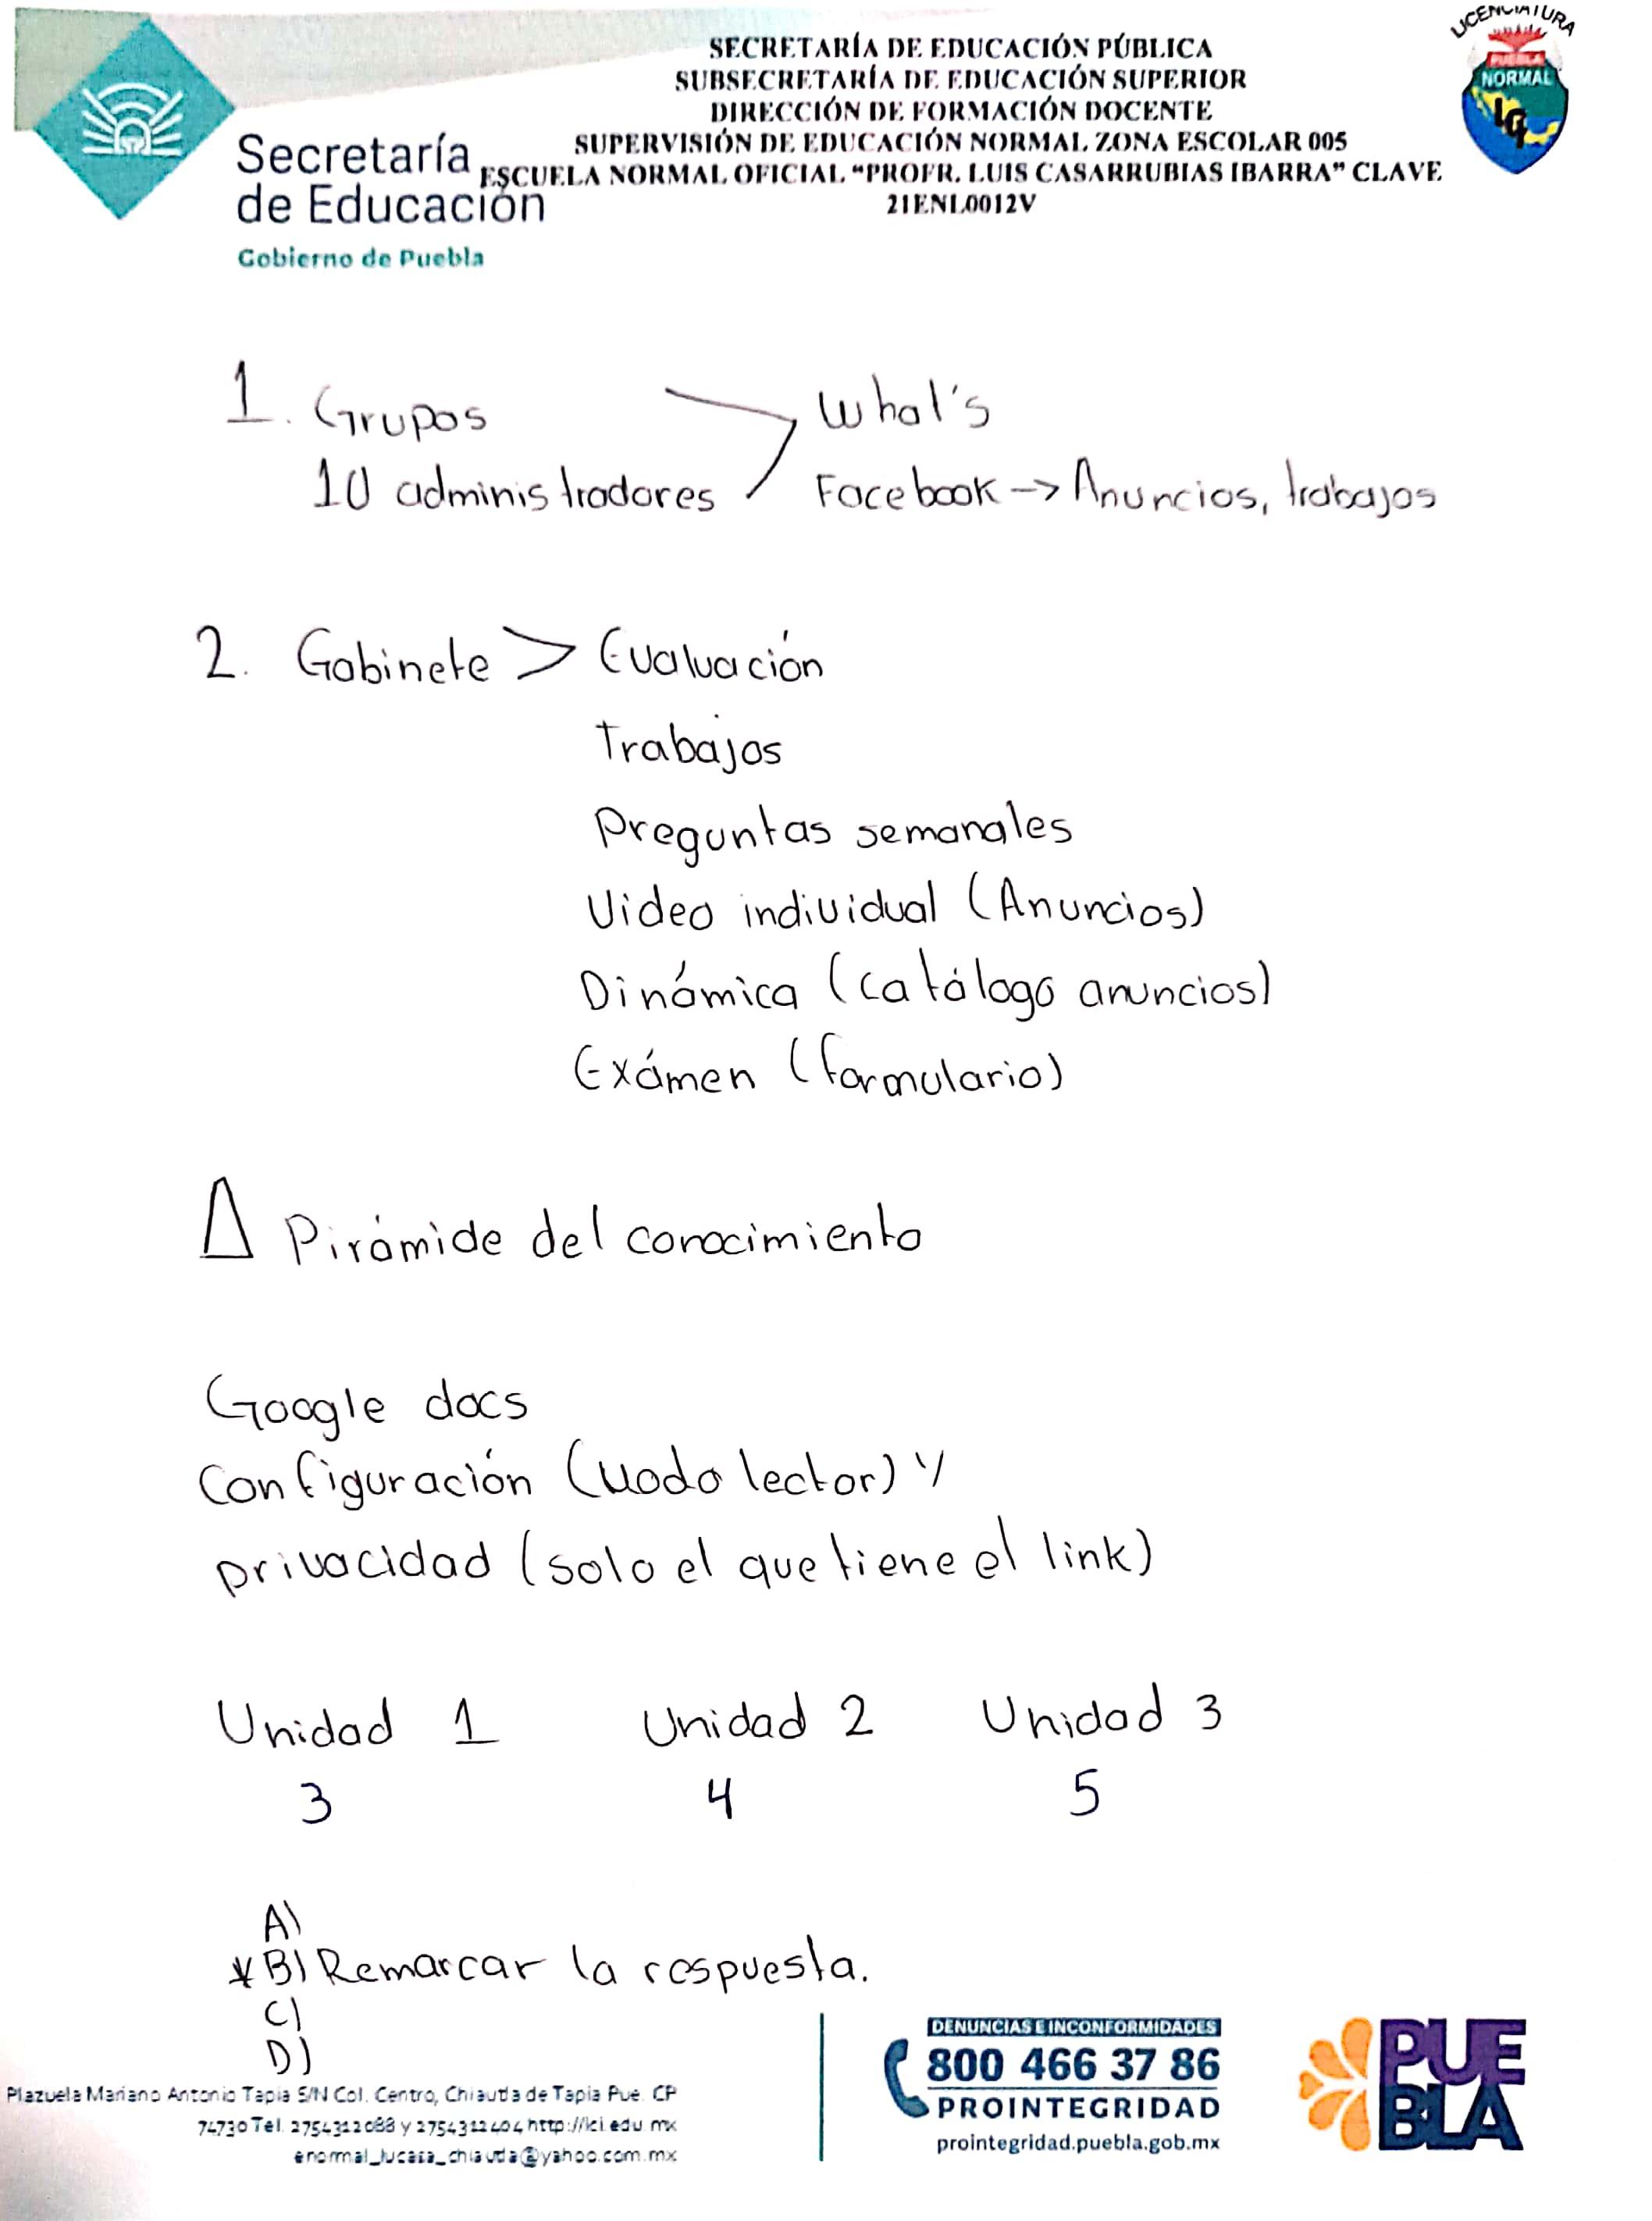 LICENCIATURA
PUEBLA
NORMAL
SECRETARÍA DE EDUCACIÓN PÚBLICA
SUBSECRETARÍA DE EDUCACIÓN SUPERIOR
DIRECCIÓN DE FORMACIÓN DOCENTE
SUPERVISIÓN DE EDUCACIÓN NORMAL ZONA ESCOLAR 005
ESCUELA NORMAL OFICIAL "PROFR. LUIS CASARRUBIAS IBARRA" CLAVE
21ENL0012V
Secretaría
de Educación
Gobierno de Puebla
1. Grupos
10 administradores
What's
Facebook -> Anuncios, trabajos
2. Gabinete > Evaluación
Trabajos
Preguntas semanales
Video individual (Anuncios)
Dinámica (catálogo anuncios)
Exámen (formulario)
Δ Pirámide del conocimiento
Google docs
Configuración (Modo lector) y
privacidad (solo el que tiene el link)
Unidad 1 Unidad 2 Unidad 3
3 4 5
A)
*B) Remarcar la respuesta.
C)
D)
Plazuela Mariano Antonio Tapia S/N Col. Centro, Chiautla de Tapia Pue. CP
74730 Tel. 2754312088 y 2754312404 http://lci.edu.mx
enormal_lucasa_chiautla@yahoo.com.mx
DENUNCIAS E INCONFORMIDADES
800 466 37 86
PROINTEGRIDAD
prointegridad.puebla.gob.mx
PUE
BLA